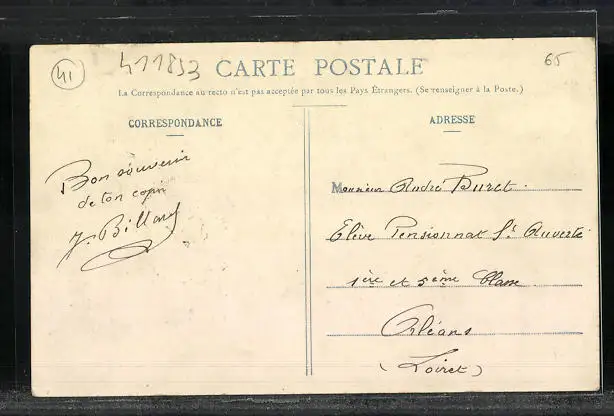 41
411853
CARTE POSTALE
65
La Correspondance au recto n'est pas acceptée par tous les Pays Étrangers. (Se renseigner à la Poste.)
CORRESPONDANCE
Bon souvenir
de ton copin
J. Billard
ADRESSE
Monsieur André Buret
Elève Pensionnat St Euverte
1ère et 5ème Classe
Orléans
(Loiret)